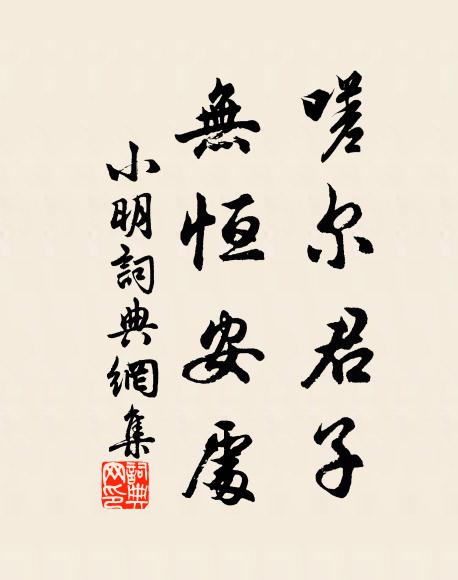 嗟尔君子
無恒安處
小明詞典網集
詞典
网印